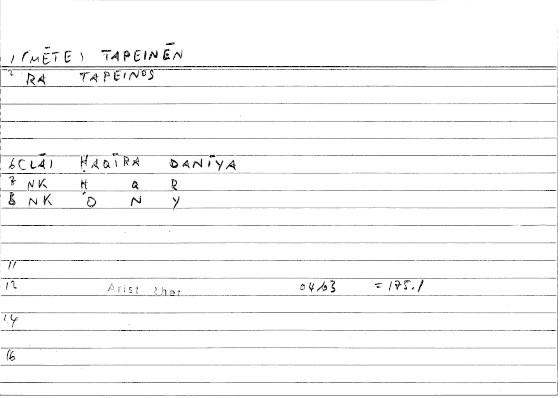 1 (MĒTE) TAPEINĒN
2 RA TAPEINOS
6 (LĀ) ḤAQĪRA DANĪYA
7 NK Ḥ Q R
8 NK D N Y
11
12 Arist Rhet 04/03 = 175.1
14
16